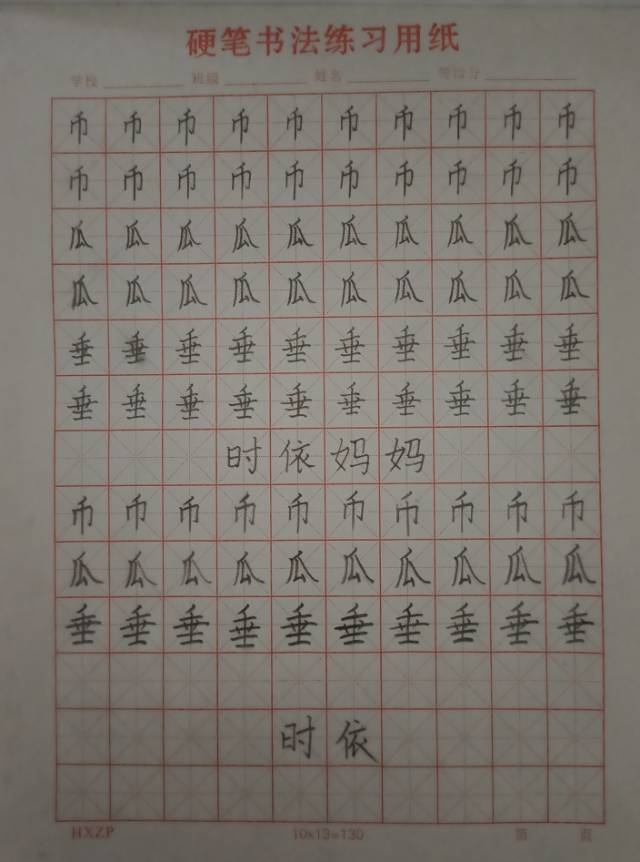 硬笔书法练习用纸
学校 班级 姓名 等级分
币币币币币币币币币币
币币币币币币币币币币
瓜瓜瓜瓜瓜瓜瓜瓜瓜瓜
瓜瓜瓜瓜瓜瓜瓜瓜瓜瓜
垂垂垂垂垂垂垂垂垂垂
垂垂垂垂垂垂垂垂垂垂
时依妈妈
币币币币币币币币币币
瓜瓜瓜瓜瓜瓜瓜瓜瓜瓜
垂垂垂垂垂垂垂垂垂垂
时依
HXZP 10x13=130 第 页